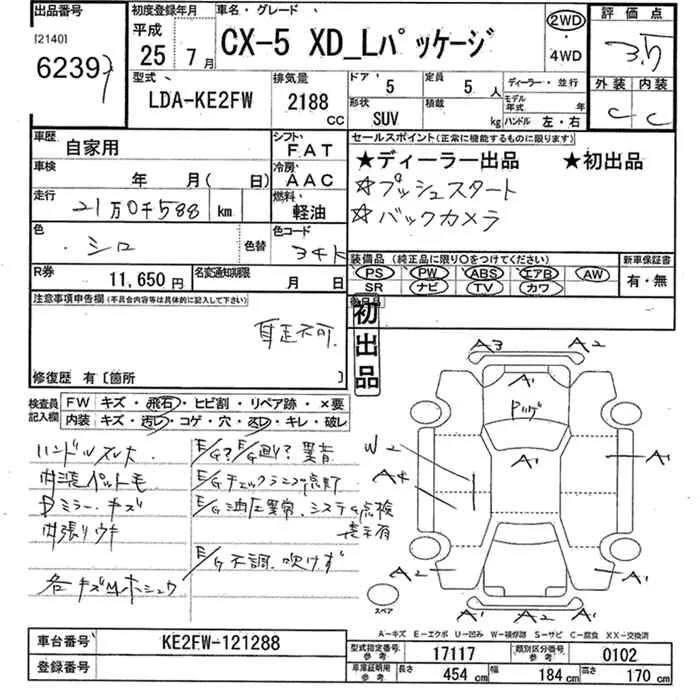 出品番号 初度登録年月 車名・グレード 2WD 評価点
[2140] 平成 CX-5 XD_Lパッケージ ・ 3.5
62397 25年 7月 4WD
型式 排気量 ドア 5 定員 5人 ディーラー・並行 外装 内装
LDA-KE2FW 2188 CC 形状 SUV 積載 kg モデル年式 年 C C
ハンドル 左・右
車歴 自家用 シフト FAT セールスポイント(正常に機能するものに限ります)
車検 年 月( 日) 冷房 AAC ★ディーラー出品 ★初出品
走行 21万0千588 km 燃料 軽油 ☆プッシュスタート
☆バックカメラ
色 シロ 色替 色コード 34K
装備品(純正品に限り○をつけてください) 新車保証書
R券 11,650円 名変通知期限 月 日 PS PW ABS エアB AW 有・無
SR ナビ TV カワ
注意事項申告欄(不具合内容等は具体的に記入して下さい)
自走不可
初出品
修復歴 有〔箇所 〕
検査員記入欄 FW キズ・飛石・ヒビ割・リペア跡・×要
内装 キズ・汚レ・コゲ・穴・スレ・キレ・破レ
ハンドルスレ大 E/G?E/G廻り?異音
内装ペットモ E/Gチェックランプ点灯
Dミラーキズ E/G油圧異常、システム点検
内張リウキ 表示有
E/G不調、吹けず
各キズ ホシュウ
A3 A2
A1
A1
A1
W2
A4
A2 A1
A1 A2
スペア
A-キズ E-エクボ U-凹み W-補修跡 S-サビ C-腐食 XX-交換済
車台番号 KE2FW-121288 型式指定番号 参考 17117 類別区分番号 参考 0102
登録番号 車庫証明用 参考 長さ 454 cm 幅 184 cm 高さ 170 cm